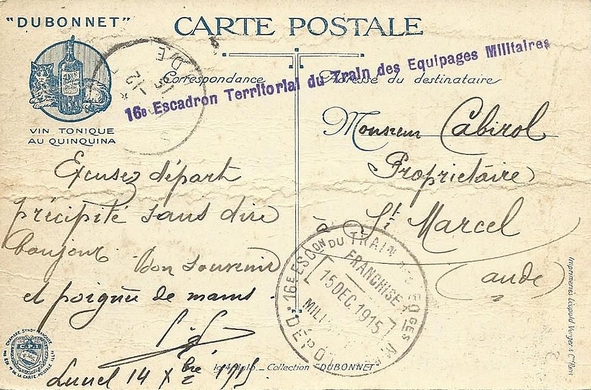 "DUBONNET"
CARTE POSTALE
VIN TONIQUE
AU QUINQUINA
16e Escadron Territorial du Train des Equipages Militaires
Correspondance
Adresse du destinataire
Excusez départ
précipité sans dire
bonjour. Bon souvenir
et poignée de mains.
Lunel 14 Xbre 1915
Monsieur Cabirol
Propriétaire
à St. Marcel
(aude)
16E ESCon DU TRAIN EQges Mres
FRANCHISE
15 DEC. 1915
MILI
DÉPÔT
Collection "DUBONNET"